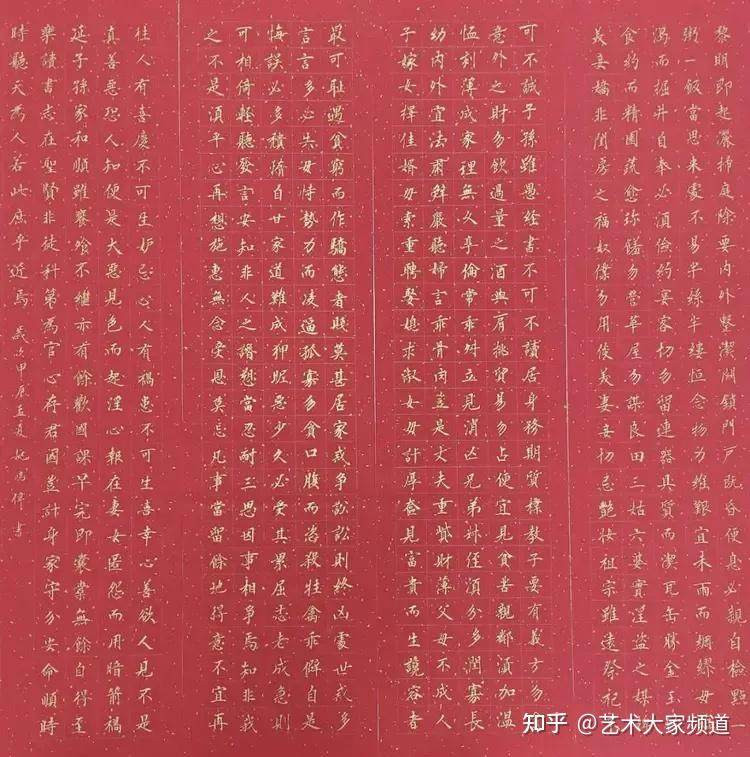 黎明即起灑掃庭除要內外整潔關鎖門戶既昏便息必親自檢點一
粥一飯當思來處不易半絲半縷恒念物力維艱宜未雨而綢繆毋
渴而掘井自奉必須儉約宴客切勿留連器具質而潔瓦缶勝金玉
食約而精園蔬愈珍饈勿營華屋勿謀良田三姑六婆實淫盜之媒
美妾嬌非閨房之福奴僕勿用俊美妻妾切忌艷妝祖宗雖遠祭祀
可不誠子孫雖愚經書不可不讀居身務期質樸教子要有義方勿
意外之財勿飲過量之酒與肩挑貿易勿占便宜見貧苦親鄰須加溫
恤刻薄成家理無久享倫常乖舛立見消亡兄弟叔侄須分多潤寡長
幼內外宜法肅辭嚴聽婦言乖骨肉豈是丈夫重貲財薄父母不成人
子嫁女擇佳婿毋索重聘娶媳求淑女毋計厚奩見富貴而生諂容者
最可恥遇貧窮而作驕態者賤莫甚居家戒爭訟訟則終凶處世戒多
言言多必失毋恃勢力而凌逼孤寡勿貪口腹而恣殺牲禽乖僻自是
悔誤必多頹惰自甘家道難成狎昵惡少久必受其累屈志老成急則
可相倚輕聽發言安知非人之譖愬當忍耐三思因事相爭焉知非我
之不是須平心再想施惠無念受恩莫忘凡事當留餘地得意不宜再
往人有喜慶不可生妒忌心人有禍患不可生喜幸心善欲人見不是
真善惡恐人知便是大惡見色而起淫心報在妻女匿怨而用暗箭禍
延子孫家和順雖饔飧不繼亦有餘歡國課早完即囊橐無餘自得至
樂讀書志在聖賢非徒科第為官心存君國豈計身家守分安命順時
時聽天為人若此庶乎近焉 歲次甲辰孟夏 書
知乎 @艺术大家频道